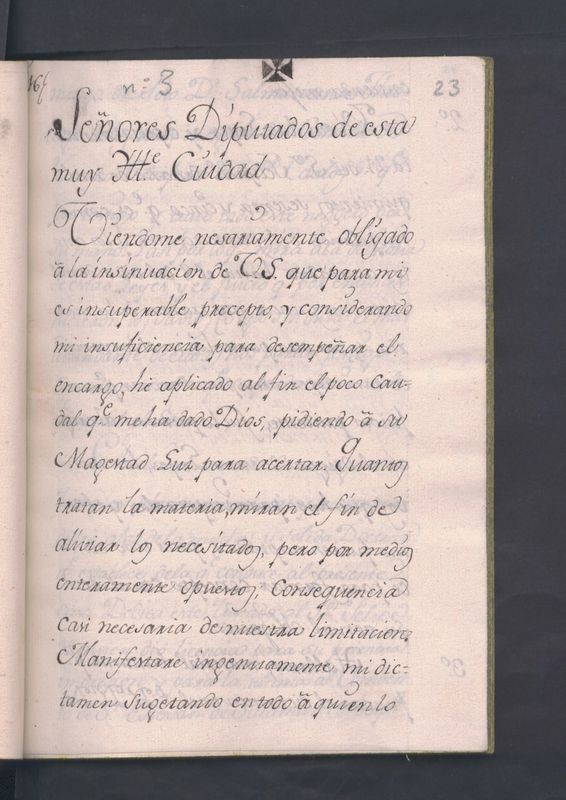 n.º 3
23
Señores Diputados de esta
muy Ill.e Ciudad
Viendome nesariamente obligado
â la insinuacion de V.S. que para mi
es insuperable precepto, y considerando
mi insuficiencia para desempeñar el
encargo, hè aplicado al fin el poco Cau=
dal q.e me ha dado Dios, pidiendo â su
Magestad Luz para acertar. Quantos
tratan la materia, miran el fin de
aliviar los necesitados, pero por medios
enteramente opuestos, Consequencia
Casi necesaria de nuestra limitacion.
Manifestare ingenuamente mi dic=
tamen sugetando en todo â quien lo